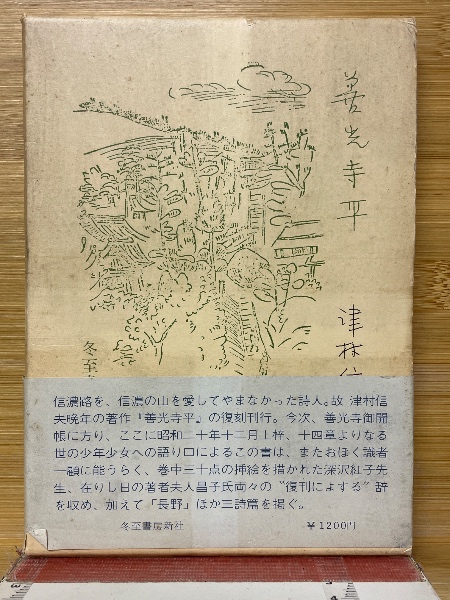 善光寺平
津村信
冬至
信濃路を、信濃の山を愛してやまなかった詩人。故 津村信
夫晩年の著作『善光寺平』の復刻刊行。今次、善光寺御開
帳に方り、ここに昭和二十年十二月上梓、十四章よりなる
世の少年少女への語り口によるこの書は、またおほく識者
一顧に能うらく、巻中三十点の挿絵を描かれた深沢紅子先
生、在りし日の著者夫人昌子氏両々の〝復刊によする〟辞
を収め、加えて「長野」ほか三詩篇を掲ぐ。
冬至書房新社
￥1200円